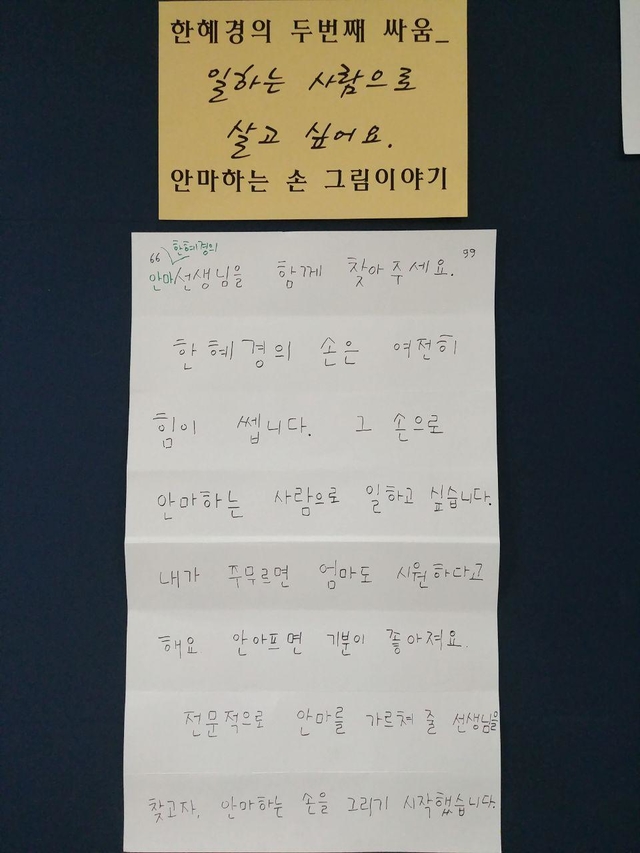 한혜경의 두번째 싸움_
일하는 사람으로
살고 싶어요.
안마하는 손 그림이야기
한혜경의
“안마선생님을 함께 찾아주세요.”
한혜경의 손은 여전히
힘이 쎕니다. 그 손으로
안마하는 사람으로 일하고 싶습니다.
내가 주무르면 엄마도 시원하다고
해요. 안아프면 기분이 좋아져요.
전문적으로 안마를 가르쳐 줄 선생님을
찾고자, 안마하는 손을 그리기 시작했습니다.